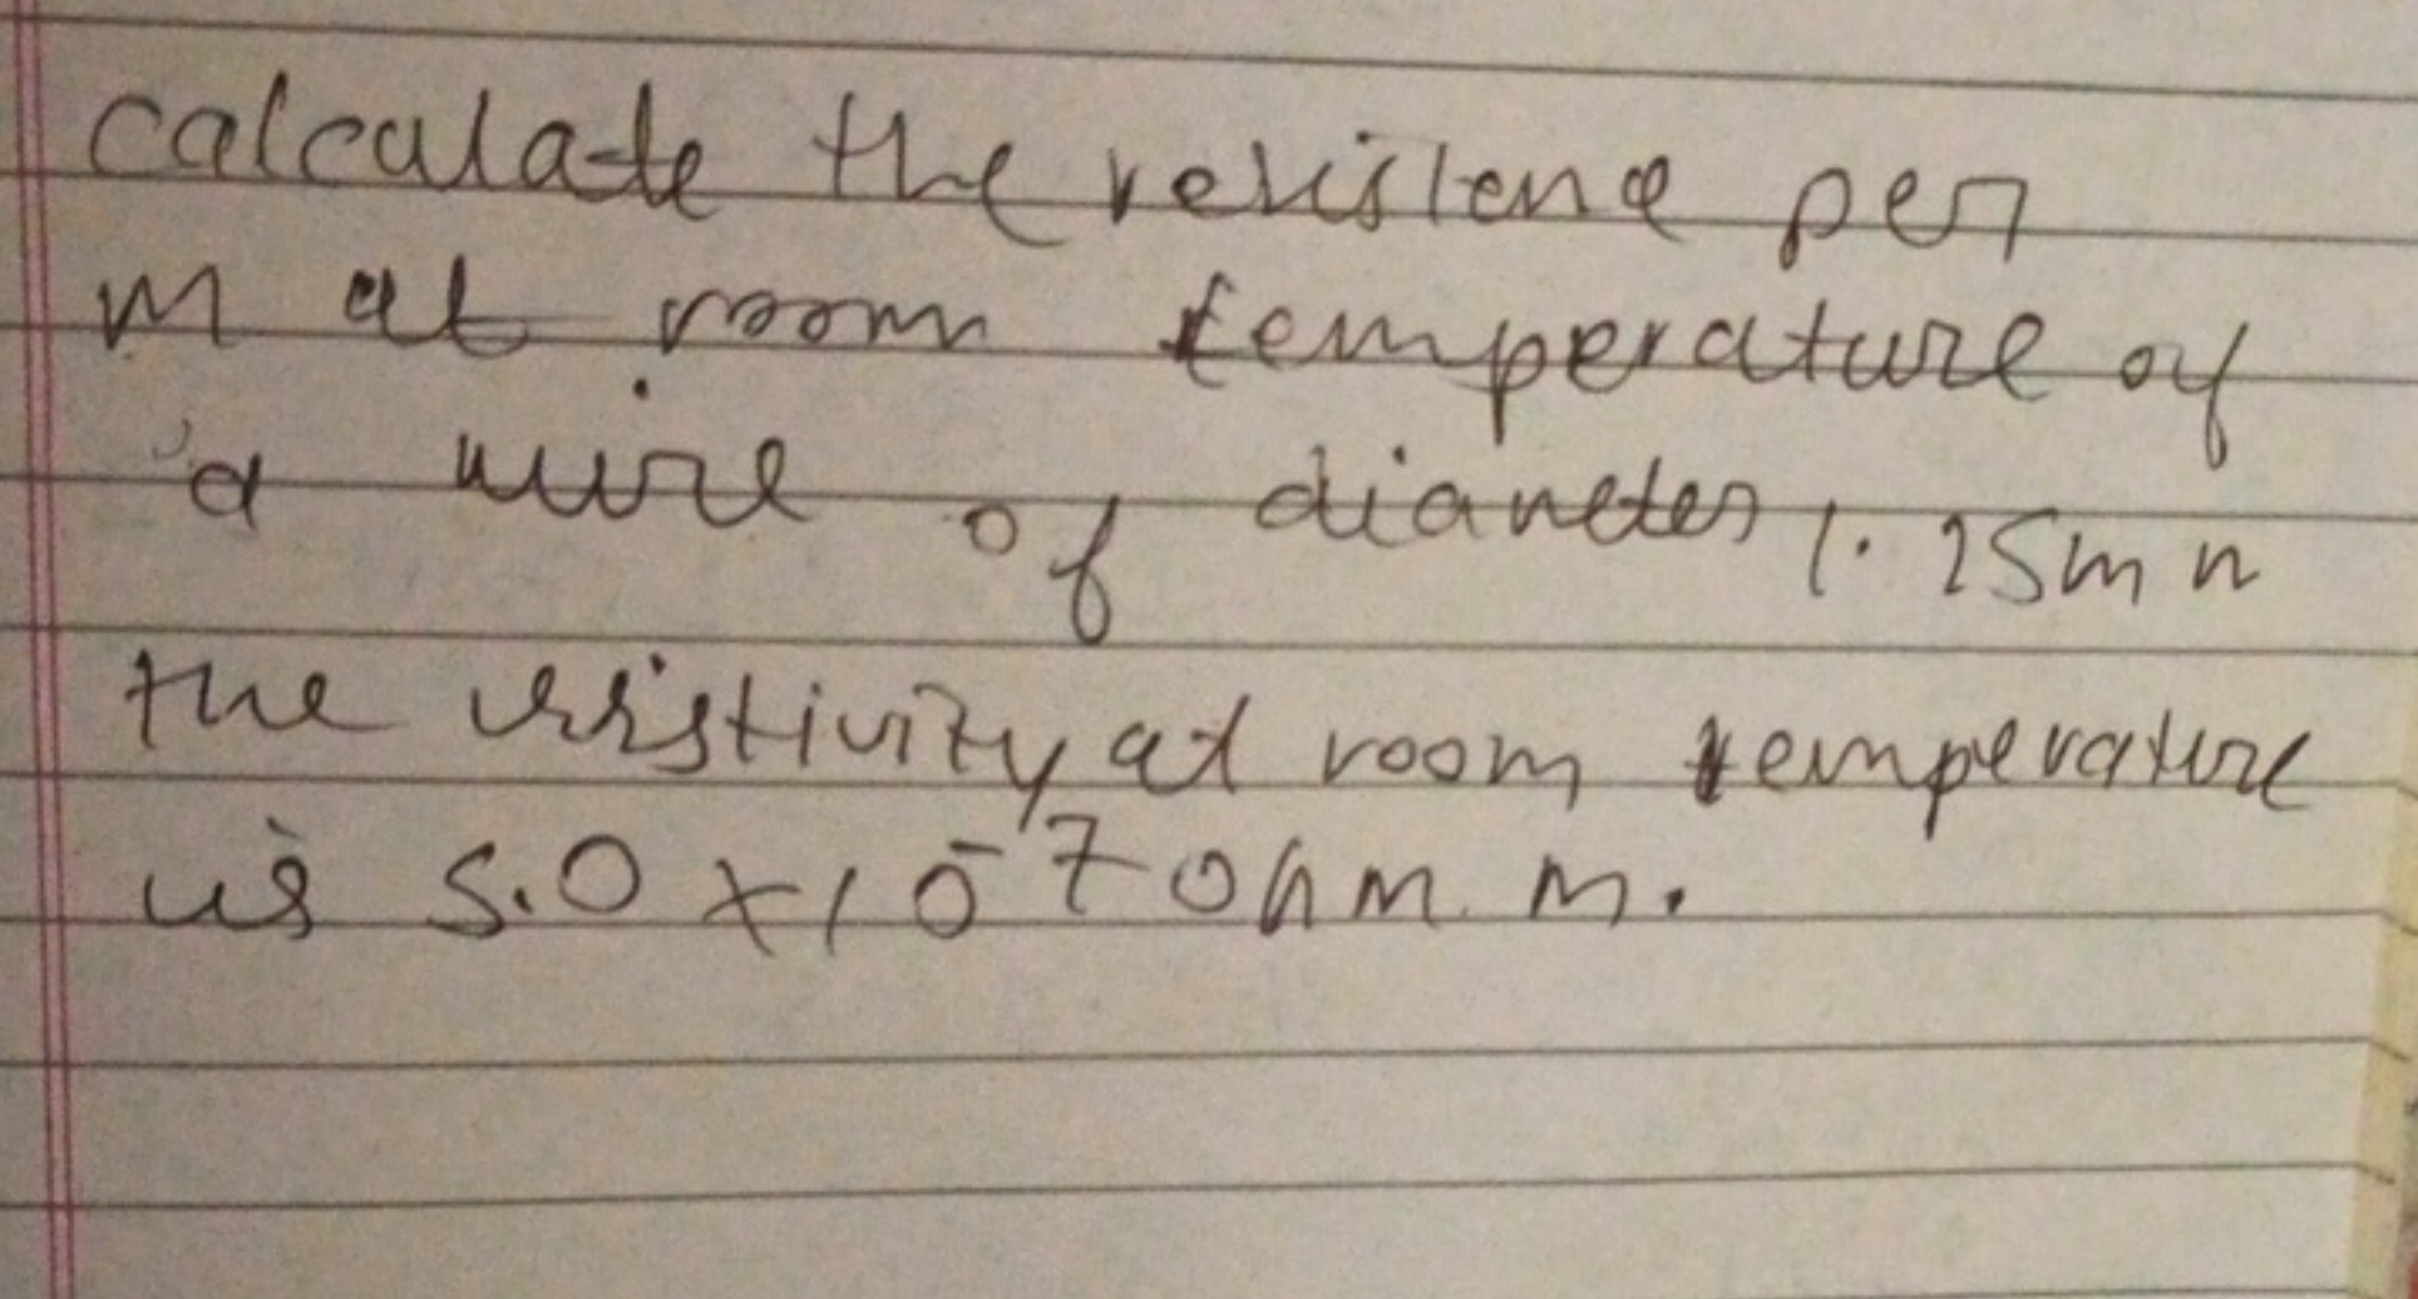 calculate the resistence per
m at room temperature of
a wire of diameter 1.25mm
the resistivity at room temperature
is 5.0 x 10-7 ohm m.